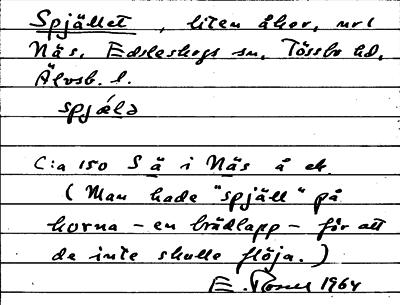 Spjället, liten åker, nr 1
Näs, Edsleskogs sn, Tössbo hd,
Älvsb. l.
spjælə
C:a 150 S ä i Näs å ek.
(Man hade "spjäll" på
horna - en brädlapp - för att
de inte skulle flöja.)
E. 1964